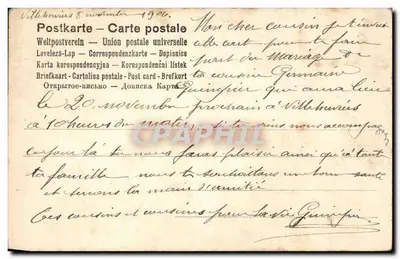 Villebouvies 8 novembre 1904.
Postkarte — Carte postale
Weltpostverein — Union postale universelle
Levelező-Lap — Correspondenzkarte — Dopisnice
Karta korespondencyjna — Korespondenční lístek
Briefkaart - Cartolina postale - Post card - Brefkort
Открытое-письмо — Дописна Карта
Mon cher cousin je t'envoie
cette carte pour te faire
part du Mariage de
ta cousine Germaine
Guinefier qui aura lieu
le 20 novembre prochain à
à 10 heures du matin si tu viens nous accompagner
ce jour là tu nous feras plaisir ainsi qu'à toute
ta famille nous te souhaitons une bonne santé
et serrons la main d'amitié
Tes cousins et cousines pour la vie Guinefier
CPAPHIL